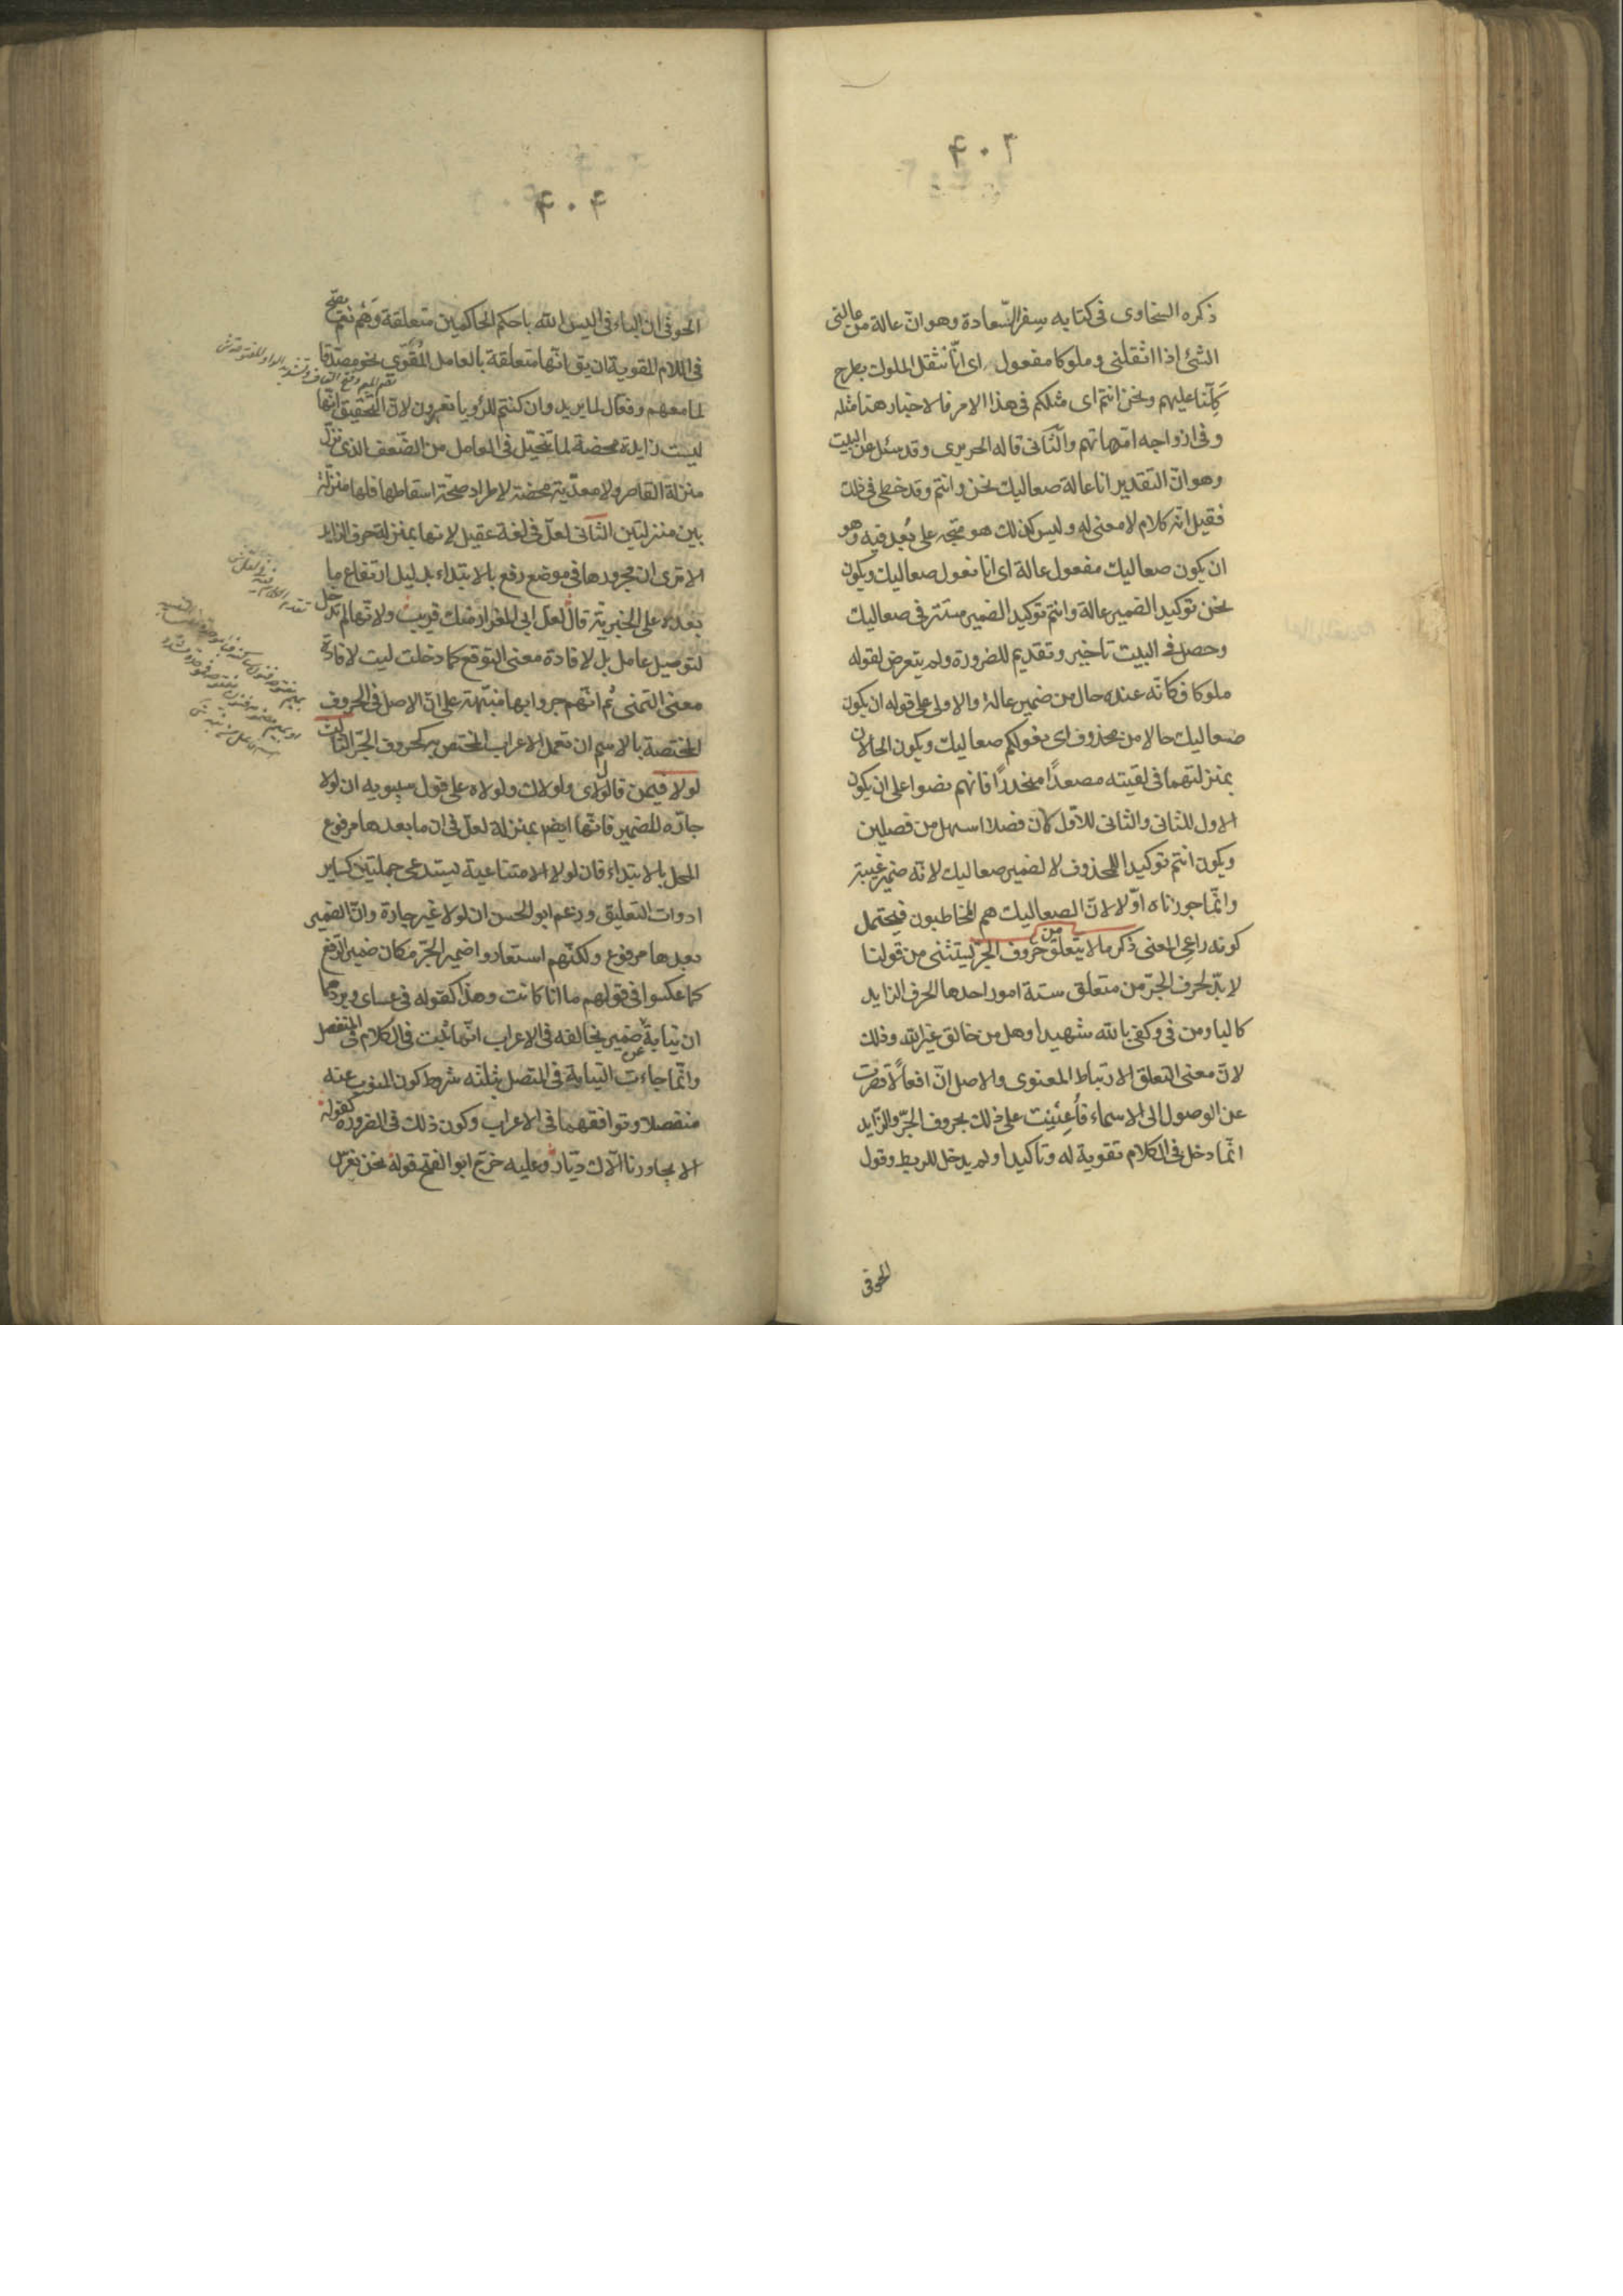 ٤٠٣
ذكره السخاوى فى كتابه سِفر السّعادة وهو انّ عالة من عالنى
الشئ إذا اثقلنى وملوكا مفعول اى انّا نثقل الملوك بطرح
كَلِّنا عليهم ونحن انتم اى مثلكم فى هذا الامر فالاخبار هنا مثله
وفى ازواجه امّهاتهم والثّانى قاله الحريرى وقد سئل عن البيت
وهو انّ التقدير انا عالة صعاليك نحن وانتم وقد خطى فى ذلك
فقيل انّه كلام لا معنى له وليس كذلك هو متّجه على بُعد فيه وهو
ان يكون صعاليك مفعول عالة اى انا نعول صعاليك ويكون
نحن توكيد الضمير عالة وانتم توكيد الضمير مستتر فى صعاليك
وحصل فى البيت تاخير وتقديم للضرورة ولم يتعرض لقوله
ملوكا فكانّه عنده حال من ضمير عالة والاولى على قوله ان يكون
صعاليك حالا من محذوف اى نعولكم صعاليك ويكون الحالان
بمنزلتهما فى لقيته مصعدًا منحدرًا فانهم نصوا على ان يكون
الاول للثانى والثانى للاول لان فصلا اسهل من فصلين
ويكون انتم توكيدا للمحذوف لا لضمير صعاليك لانّه ضمير غيبة
وانّما جوزناه اوّلا لانّ الصعاليك هم المخاطبون فيحتمل
كونه راعى المعنى ذكر ما لا يتعلّق من حروف الجرّ يستثنى من قولنا
لا بدّ لحرف الجرّ من متعلق ستة امور احدها الحرف الزايد
كالبا ومن فى وكفى بالله شهيدا وهل من خالق غير الله وذلك
لانّ معنى التعلق الارتباط المعنوى والاصل انّ افعالًا قصرت
عن الوصول الى الاسماء فأُعِينت على ذلك بحروف الجرّ والزّايد
انّما دخل فى الكلام تقوية له وتاكيدا ولم يدخل للربط وقول
الحوفى
٤٠٤
الحوفى ان الباء فى اليس الله باحكم الحاكمين متعلقة وَهْم نعم يصحّ
فى اللام المقوية ان يق انّها متعلقة بالعامل المُقوّى نحو مصدّقا
لما معهم وفعال لما يريد وان كنتم للرؤيا تعبرون لانّ التّحقيق انّها
ليست زايدة محضة لما تخيّل فى العامل من الضّعف الذى نزّل
منزلة القاصر ولا معدّية محضة لاطراد صحّة اسقاطها فلها منزلة
بين منزلتين الثّانى لعلّ فى لغة عقيل لانها بمنزلة حرف الزايد
الا ترى ان مجرورها فى موضع رفع بالابتداء بدليل ارتفاع ما
بعده على الخبرية قال لعلّ ابى المغوار منك قريب ولانّها لم تدخل
لتوصيل عامل بل لافادة معنى التوقع كما دخلت ليت لافادة
معنى التمنى ثم انّهم جروا بها منبّهة على انّ الاصل فى الحروف
المختصة بالاسم ان تعمل الاعراب المختص به كحروف الجرّ الثالث
لولا فيمن قال لولاى ولولاك ولولاه على قول سيبويه ان لولا
جارّه للضمير فانّها ايضا بمنزلة لعلّ فى ان ما بعدها مرفوع
المحل بالابتداء فان لولا الامتناعية يستدعى جملتين كساير
ادوات التعليق وزعم ابو الحسن ان لولا غير جارة وانّ الضمير
بعدها مرفوع ولكنّهم استعاروا ضمير الجرّ مكان ضمير الرّفع
كما عكسوا فى قولهم ما انا كانت وهذا كقوله فى عساى ويردهما
ان نيابة ضمير عن ضمير يخالفه فى الاعراب انّما ثبت فى الكلام فى المنفصل
وانّما جاءت النيابة فى المتصل بثلثه شروط كون المنوب عنه
منفصلا وتوافقهما فى الاعراب وكون ذلك فى الضرورة كقوله
الا يجاورنا الّاك ديّارُ وعليه خرّج ابو الفتح قوله نحن بغرس